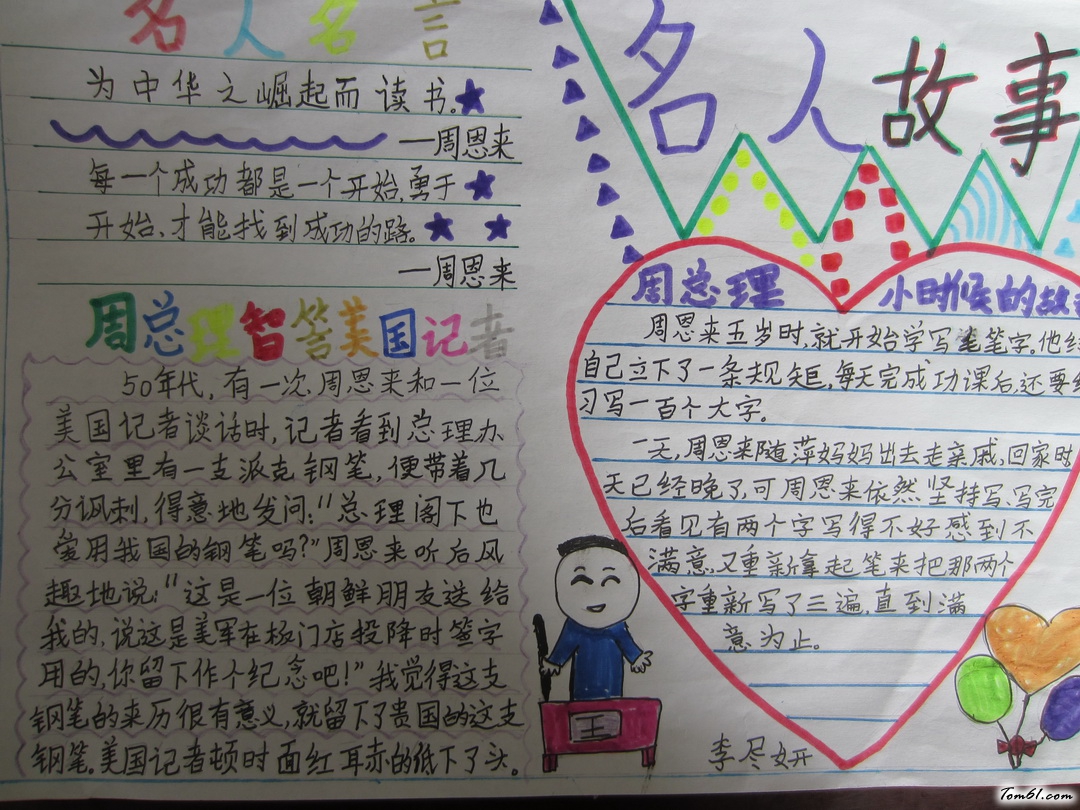 名人名言
为中华之崛起而读书。
—周恩来
每一个成功都是一个开始,勇于
开始、才能找到成功的路。
—周恩来
周总理智答美国记者
50年代,有一次,周恩来和一位
美国记者谈话时,记者看到总理办
公室里有一支派克钢笔,便带着几
分讽刺,得意地发问:"总理阁下也
爱用我国的钢笔吗?"周恩来听后风
趣地说:"这是一位朝鲜朋友送给
我的,说这是美军在板门店投降时签字
用的,你留下作个纪念吧!"我觉得这支
钢笔的来历很有意义,就留下了贵国的这支
钢笔。美国记者顿时面红耳赤的低下了头。
名人故事
周总理 小时候的故
周恩来五岁时,就开始学写笔字。他
自己立下了一条规矩,每天完成功课后,还要
习写一百个大字。
一天,周恩来随萍妈妈出去走亲戚,回家时
天已经晚了,可周恩来依然坚持写、写完
后看见有两个字写得不好感到不
满意.又重新拿起笔来把那两个
字重新写了三遍,直到满
意为止。
王
李尽妍
Tom61.com